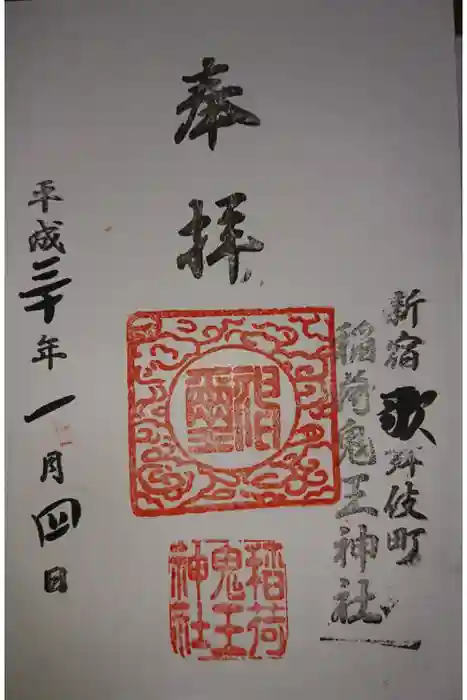 奉拝
新宿歌舞伎町
稲荷鬼王神社
平成三十年一月四日
稲荷
鬼王
神社